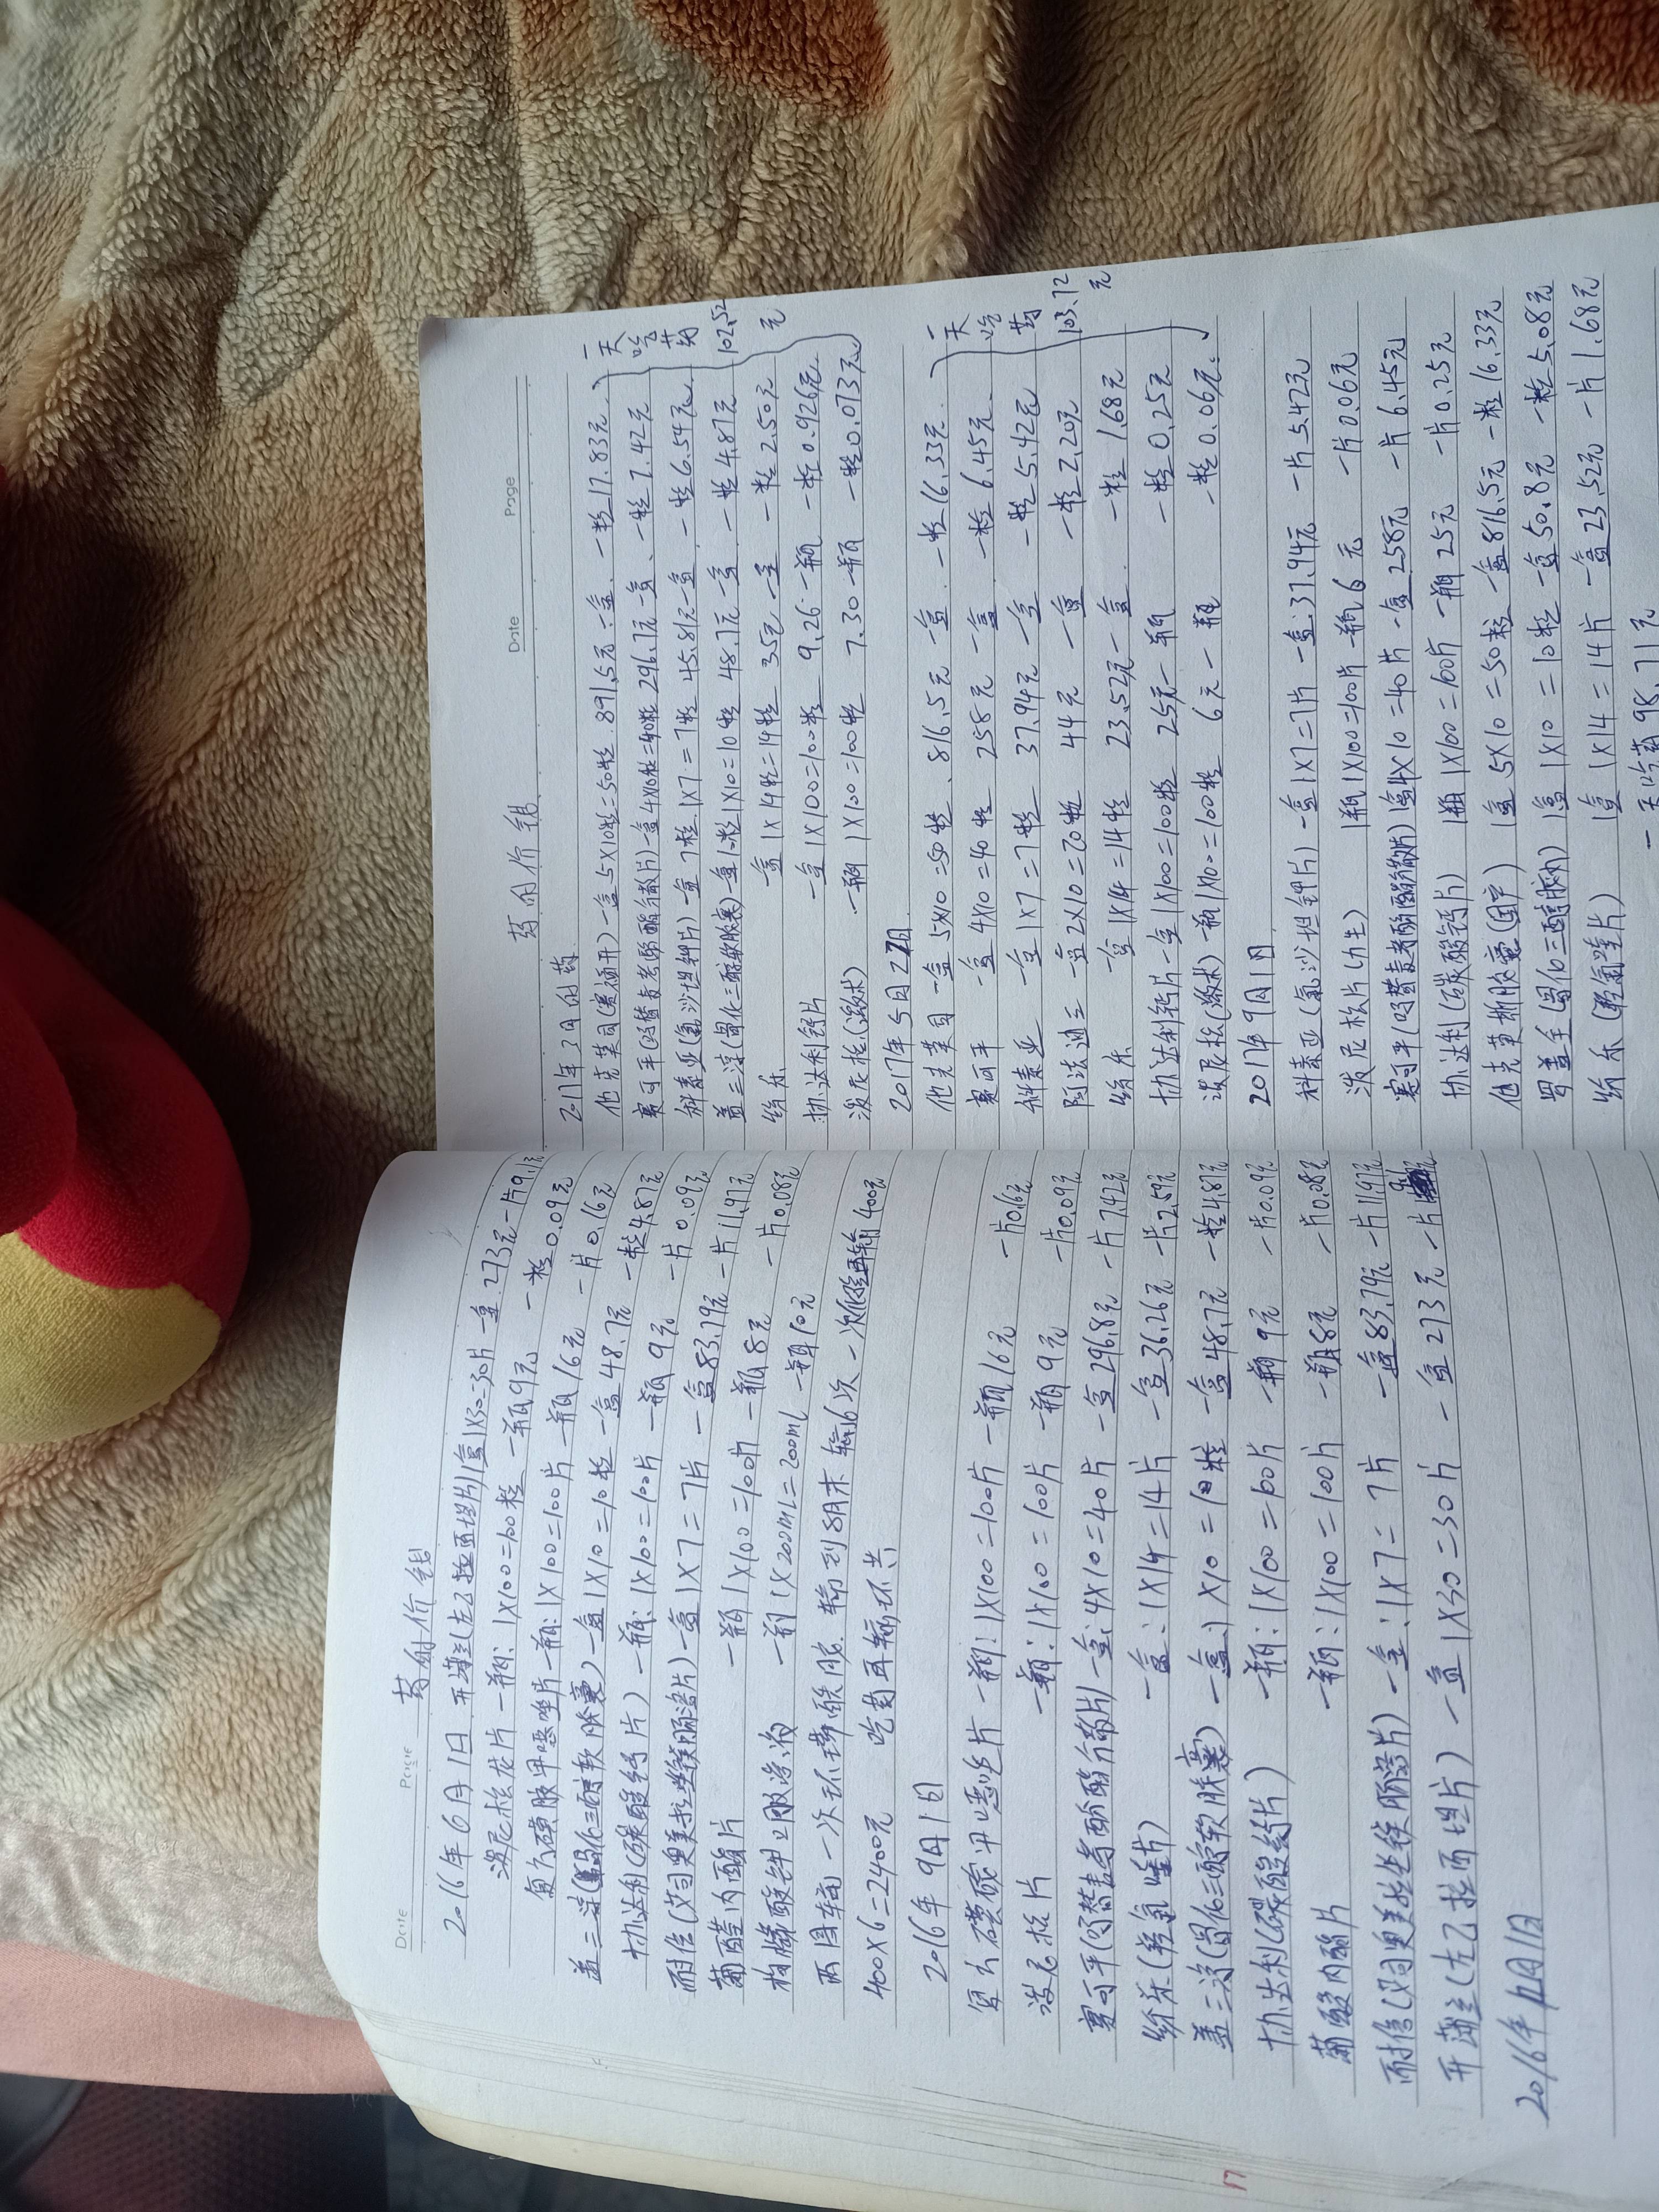 Date Page 药的价钱
2016年6月1日 开浦兰(左乙拉西坦片)1盒1X30=30片一盒273元一片9.1元
泼尼松龙片一瓶:1X100=100粒 一瓶9元 一粒0.09元
复方磺胺甲噁唑片一瓶:1X100=100片 一瓶16元 一片0.16元
盖三淳(骨化三醇软胶囊)一盒1X10=10粒 一盒48.7元 一粒4.87元
协达利(碳酸钙片) 一瓶:1X100=100片 一瓶9元 一片0.09元
耐信(艾司奥美拉唑镁肠溶片)一盒1X7=7片 一盒83.79元 一片11.97元
葡醛内酯片 一瓶1X100=100片 一瓶8元 一片0.08元
枸橼酸钾口服溶液 一瓶1X200ml=200ml 一瓶10元
两周输一次环磷酰胺 输到8月末 输6次 一次化验再输400元
400X6=2400元 吃药再输环共
2016年9月1日
复方磺胺甲噁唑片 一瓶:1X100=100片 一瓶16元 一片0.16元
泼尼松片 一瓶:1X100=100片 一瓶9元 一片0.09元
赛可平(吗替麦考酚酯分散片)一盒:4X10=40片 一盒296.8元 一片7.42元
纷乐(羟氯喹片) 一盒:1X14=14片 一盒36.26元 一片2.59元
盖三淳(骨化三醇软胶囊) 一盒:1X10=10粒 一盒48.7元 一粒4.87元
协达利(碳酸钙片) 一瓶:1X100=100片 一瓶9元 一片0.09元
葡醛内酯片 一瓶:1X100=100片 一瓶8元 一片0.08元
耐信(艾司奥美拉唑镁肠溶片) 一盒:1X7=7片 一盒83.79元 一片11.97元
开浦兰(左乙拉西坦片) 一盒1X30=30片 一盒273元 一片
2016年12月1日
17
药的价钱 Date Page
2017年3月的药
他克莫司(赛福开)一盒5X10粒=50粒 891.5元一盒 一粒17.83元
赛可平(吗替麦考酚酯分散片)一盒4X10粒=40粒 296.7元一盒、一粒7.42元
科素亚(氯沙坦钾片)一盒7粒 1X7=7粒 45.81元一盒 一粒6.54元
盖三淳(骨化三醇软胶囊)一盒10粒1X10=10粒 48.7元一盒 一粒4.87元
纷乐 一盒1X14粒=14粒 35元一盒 一粒2.50元
协达利钙片 一盒1X100=100粒 9.26一瓶 一粒0.926元
泼尼松(激术) 一瓶1X100=100粒 7.30一瓶 一粒0.073元
一天吃药102.52元
2017年5月27日
他克莫司 一盒5X10=50粒、816.5元一盒 一粒16.33元
赛可平 一盒4X10=40粒 258元一盒 一粒6.45元
科素亚 一盒1X7=7粒 37.94元一盒 一粒5.42元
阿法迪三 一盒2X10=20粒 44元一盒 一粒2.20元
纷乐 一盒1X14=14粒 23.52元一盒 一粒1.68元
协达利钙片一盒1X100=100粒 25元一瓶 一粒0.25元
泼尼松(激术)一瓶1X100=100粒 6元一瓶 一粒0.06元
一天吃药103.12元
2017年9月1日
科素亚(氯沙坦钾片)一盒1X7=7片 一盒:37.94元 一片5.42元
泼尼松片(力生) 1瓶1X100=100片 一瓶6元 一片0.06元
赛可平(吗替麦考酚酯分散片)1盒4X10=40片 一盒258元 一片6.45元
协达利(碳酸钙片) 1瓶1X100=100片 一瓶25元 一片0.25元
他克莫斯胶囊(国产) 1盒5X10=50粒 一盒816.5元 一粒16.33元
罗盖全(骨化三醇胶丸) 1盒1X10=10粒 一盒50.8元 一粒5.08元
纷乐(羟氯喹片) 1盒1X14=14片 一盒23.52元 一片1.68元
一天吃药98.71元